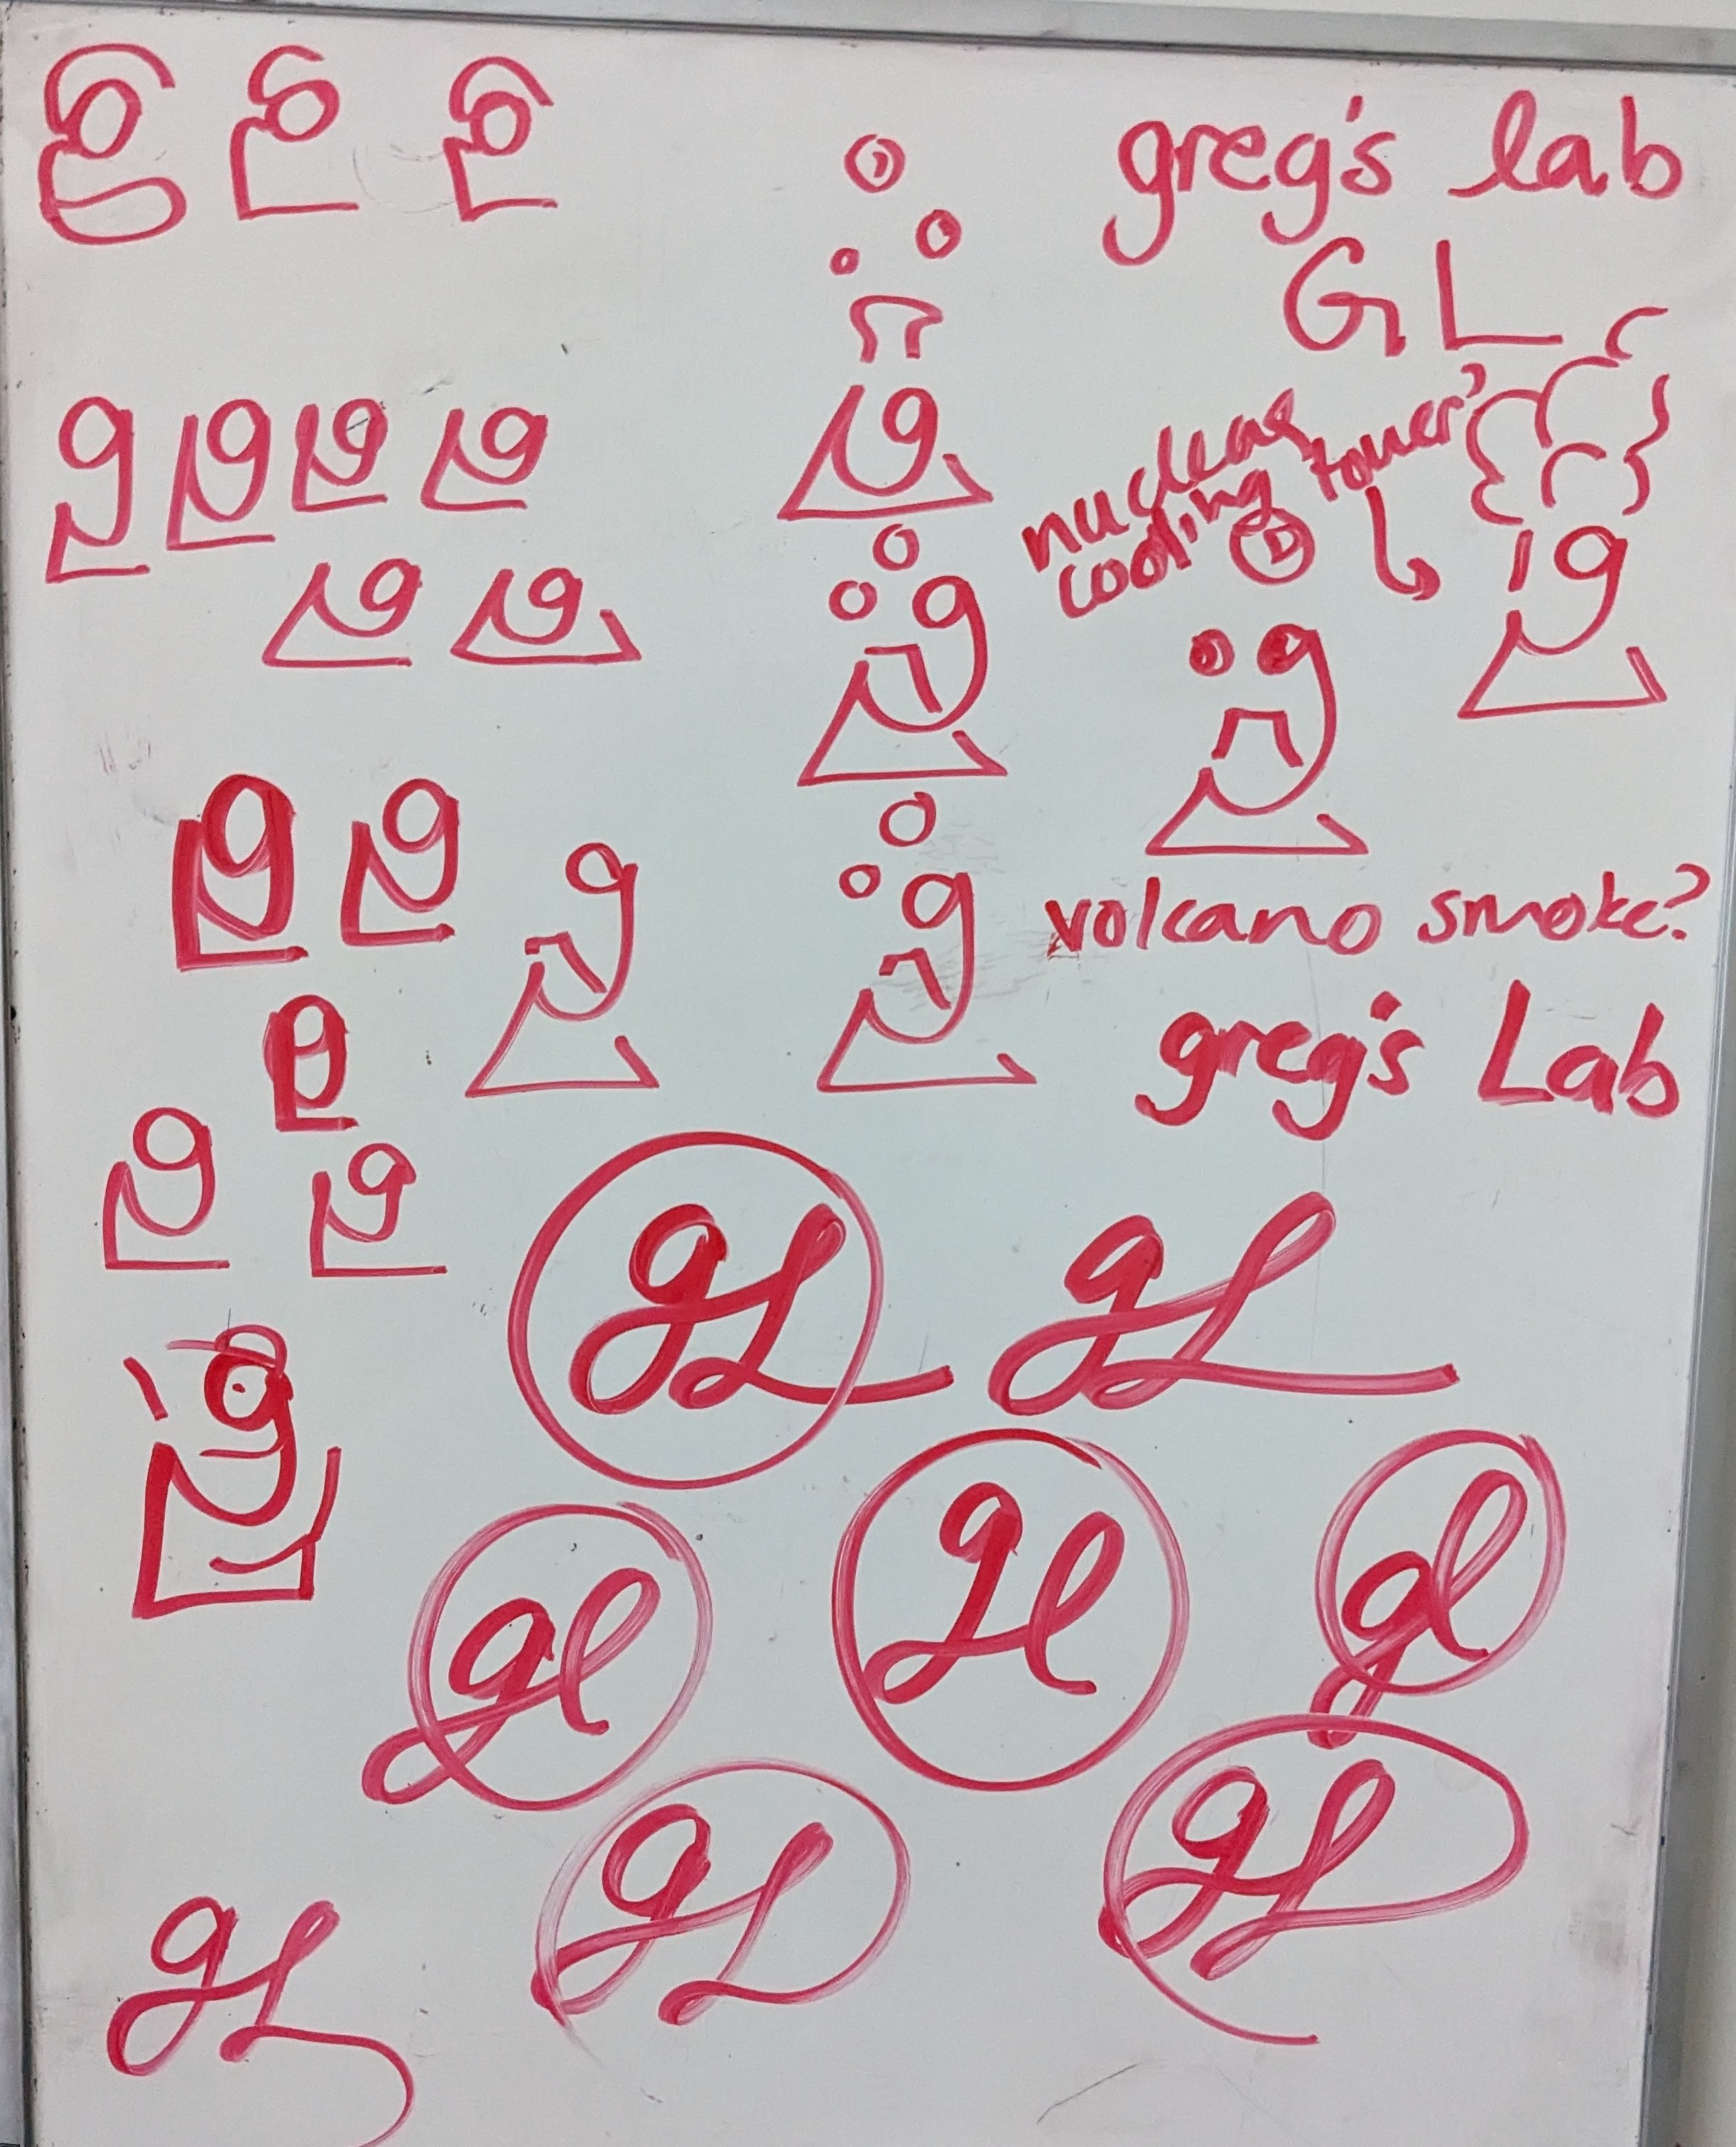 greg's lab
GL
nuclear
cooling tower?
volcano smoke?
greg's Lab
gL gL
gl gl gl
gL gL
gL